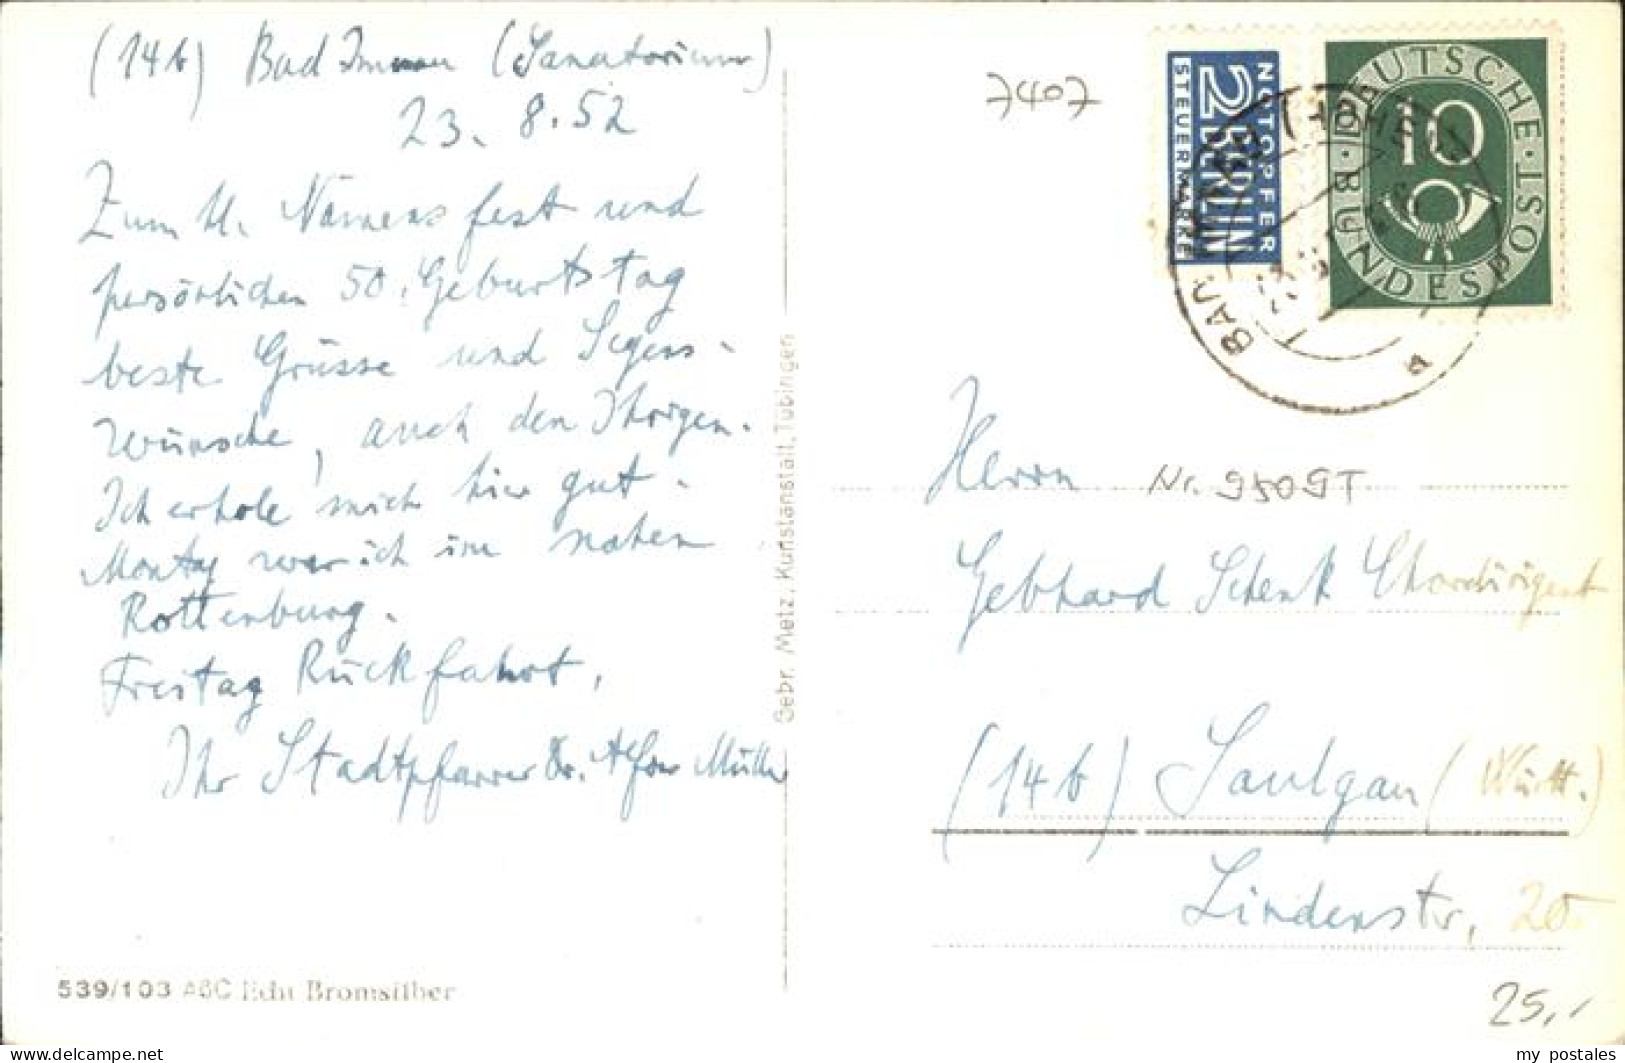 (14b) Bad Imnau (Sanatorium)
23. 8. 52
Zum hl. Namensfest und
persönlichen 50. Geburtstag
beste Grüsse und Segens-
wünsche, auch den Ihrigen.
Ich erhole mich hier gut.
Montag war ich im nahen
Rottenburg.
Freitag Rückfahrt.
Ihr Stadtpfarrer Dr. Alfons Müller
539/103 ABC Echt Bromsilber
Gebr. Metz, Kunstanstalt, Tübingen
7407
NOTOPFER
2 BERLIN
STEUERMARKE
DEUTSCHE BUNDESPOST
10
BAD
a
Herrn Nr. 9509T
Gebhard Schenk Chordirigent
(14b) Saulgau (Württ.)
Lindenstr. 20
25,-
my postales
www.delcampe.net